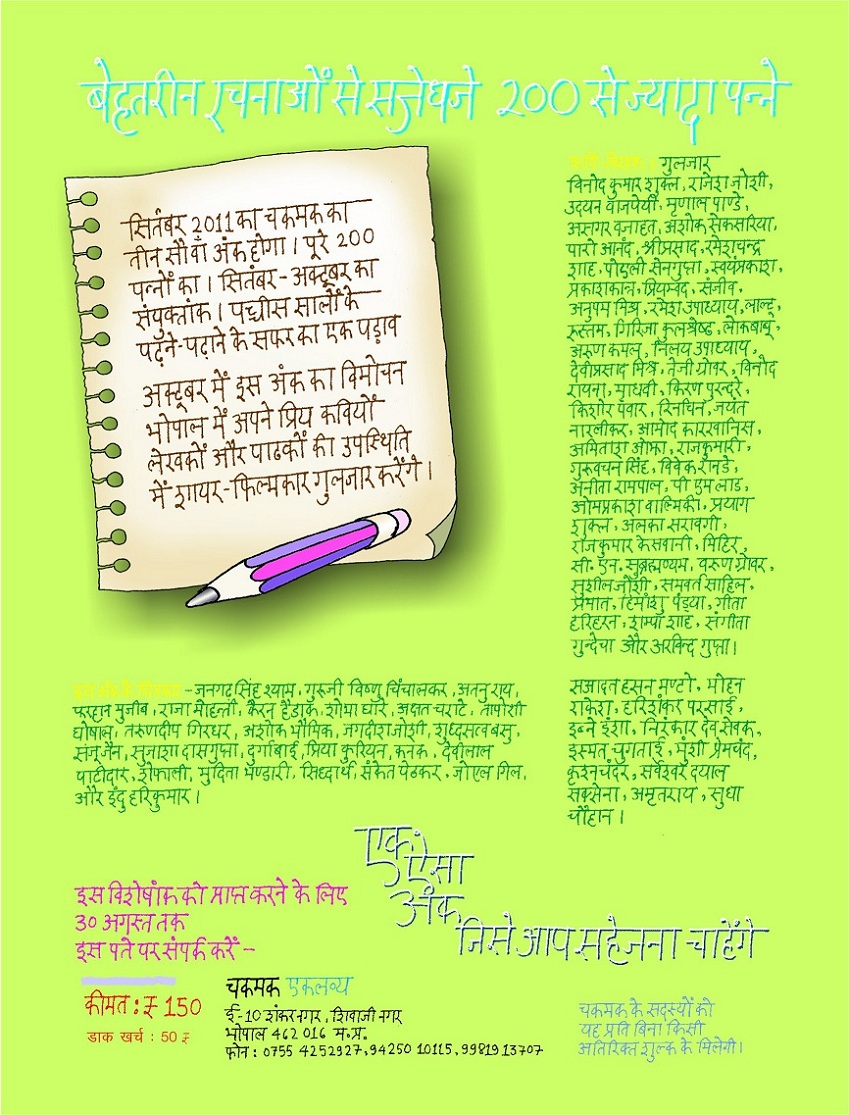 बेहतरीन रचनाओं से सजेधजे 200 से ज्यादा पन्ने
सितंबर 2011 का चकमक का
तीन सौवाँ अंक होगा। पूरे 200
पन्नों का। सितंबर-अक्टूबर का
संयुक्तांक। पच्चीस सालों के
पढ़ने-पढ़ाने के सफर का एक पड़ाव
अक्टूबर में इस अंक का विमोचन
भोपाल में अपने प्रिय कवियों
लेखकों और पाठकों की उपस्थिति
में शायर-फिल्मकार गुलजार करेंगे।
गुलजार
विनोद कुमार शुक्ल, राजेश जोशी,
उदयन वाजपेयी, मृणाल पाण्डे,
असगर वजाहत, अशोक सेकसरिया,
पारो आनंद, श्रीप्रसाद, रमेशचन्द्र
शाह, पोएली सेनगुप्ता, स्वयंप्रकाश,
प्रकाशकान्त, प्रियम्वद, संजीव,
अनुपम मिश्र, रमेश उपाध्याय, लाल्टू,
रूस्तम, गिरिजा कुलश्रेष्ठ, लोकबाबू,
अरूण कमल, निलय उपाध्याय,
देवीप्रसाद मिश्र, तेजी ग्रोवर, विनोद
रायना, माधवी, किरण पुरन्दरे,
किशोर पंवार, रिनचिन, जयंत
नारलीकर, आमोद कारखानिस,
अमिताश ओझा, राजकुमारी,
गुरूवचन सिंह, विवेक रानडे,
अनीता रामपाल, पी एम लाड,
ओमप्रकाश वाल्मिकी, प्रयाग
शुक्ल, अलका सरावगी,
राजकुमार केसवानी, मिहिर,
सी. एन. सुब्रह्मण्यम, वरूण ग्रोवर,
सुशील जोशी, समवर्त साहिल,
प्रभात, हिमांशु पंड्या, गीता
हरिहरन, शम्पा शाह, संगीता
गुन्देचा और अरविन्द गुप्ता।
सआदत हसन मण्टो, मोहन
राकेश, हरिशंकर परसाई,
इब्ने इंशा, निरंकार देव सेवक,
इस्मत चुगताई, मुंशी प्रेमचंद,
कृश्नचंदर, सर्वेश्वर दयाल
सक्सेना, अमृतराय, सुधा
चौहान।
-जनगढ़ सिंह श्याम, गुरूजी विष्णु चिंचालकर, अतनु राय,
फरहान मुजीब, राजा मोहन्ती, कैरन हैडॉक, शोभा घारे, अक्षत चराटे, तापोशी
घोषाल, तरूणदीप गिरधर, अशोक भौमिक, जगदीश जोशी, शुद्धसत्व बसु,
संजू जैन, सुजाशा दासगुप्ता, दुर्गाबाई, प्रिया कुरियन, कनक, देवीलाल
पाटीदार, शेफाली, मुदिता भण्डारी, सिध्दार्थ, संकेत पेठकर, जोएल गिल,
और इंदु हरिकुमार।
एक ऐसा
अंक
जिसे आप सहेजना चाहेंगे
इस विशेषांक को प्राप्त करने के लिए
30 अगस्त तक
इस पते पर संपर्क करें -
कीमत : ₹ 150
डाक खर्च : 50 ₹
चकमक एकलव्य
ई-10 शंकर नगर, शिवाजी नगर
भोपाल 462 016 म.प्र.
फोन : 0755 4252927, 94250 10115, 99819 13707
चकमक के सदस्यों को
यह प्रति बिना किसी
अतिरिक्त शुल्क के मिलेगी।